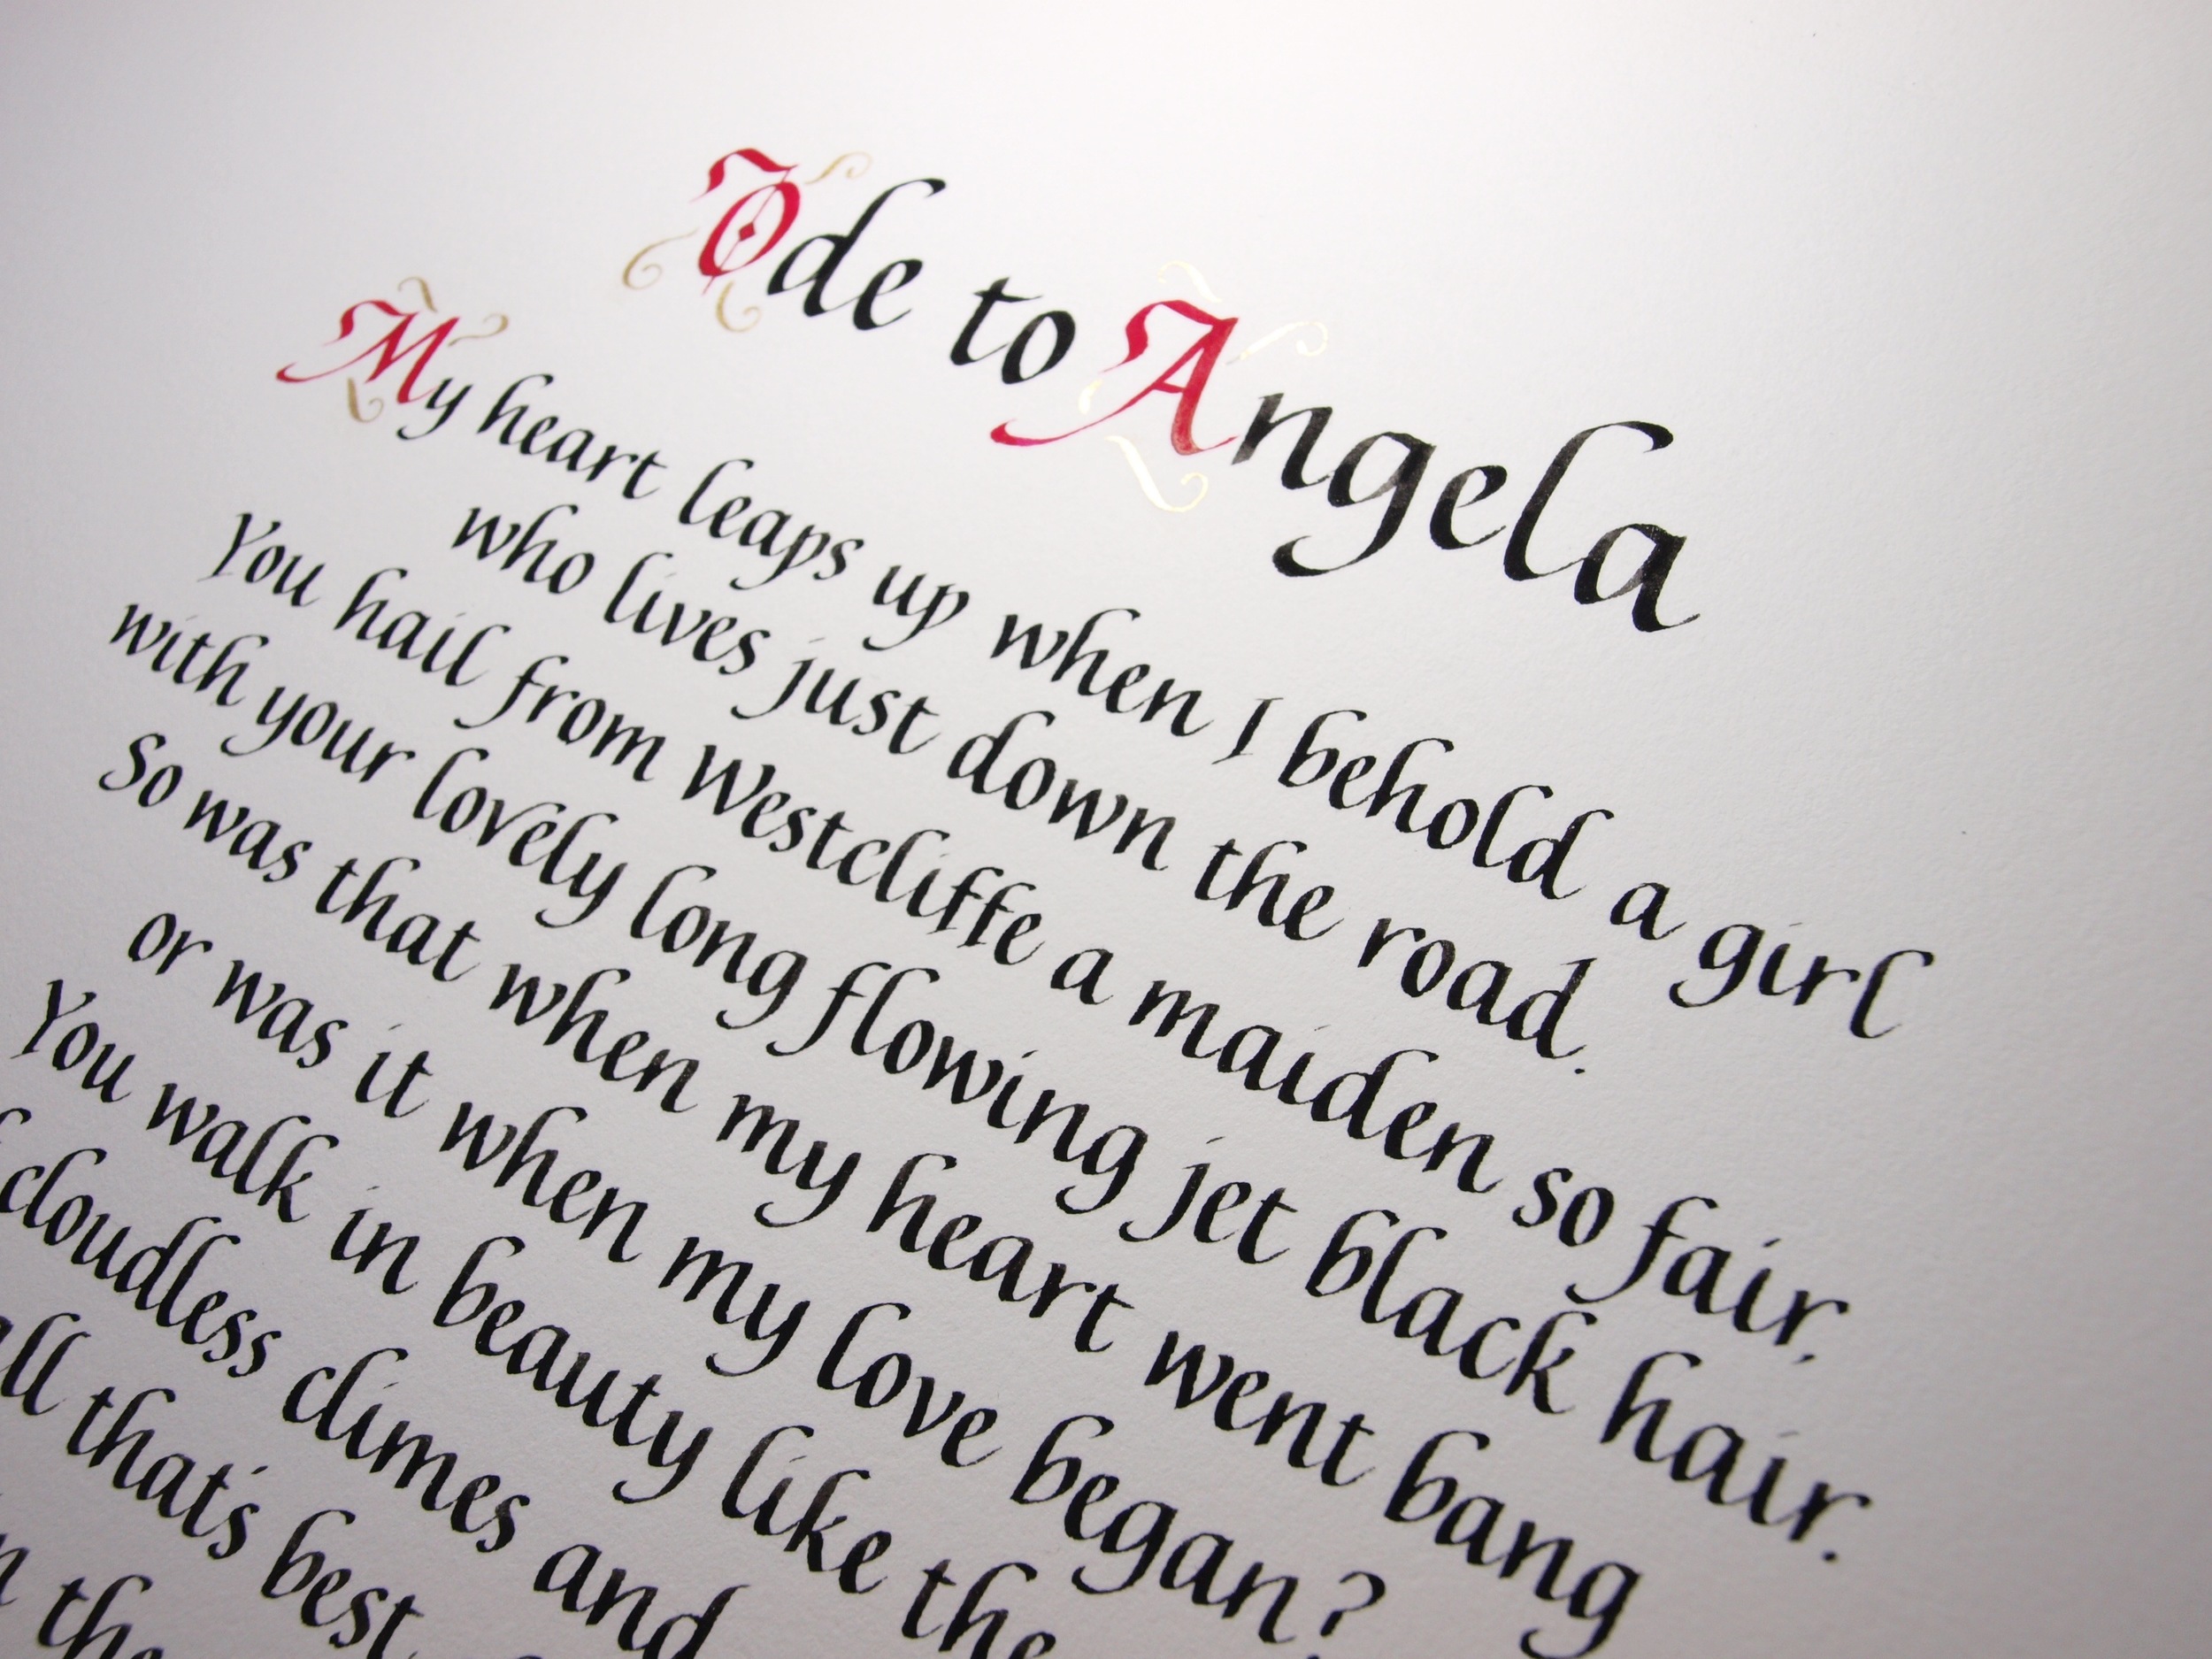 Ode to Angela
My heart leaps up when I behold a girl
who lives just down the road.
You hail from Westcliffe a maiden so fair.
with your lovely long flowing jet black hair.
So was that when my heart went bang
or was it when my love began?
You walk in beauty like the
cloudless climes and
all that's best
the